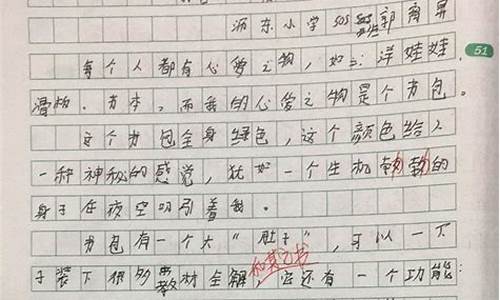 沥东小学505班郭
每个人都有心爱之物，如：洋娃娃，
51
滑板、书本，而我的心爱之物是个书包。
这个书包全身绿色，这个颜色给人
一种神秘的感觉，犹如一个生机勃勃的
身子在夜空吸引着我。
书包有一个大“肚子”，可以一下
子装下很多教材全解和其它书 它还有一个功能